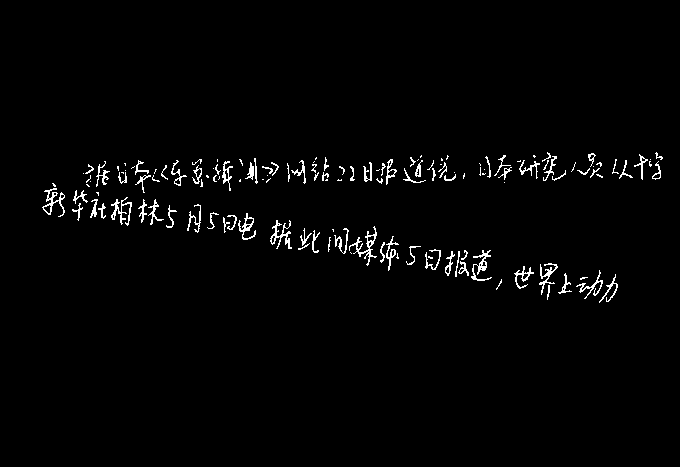 据日本《东京新闻》网站22日报道说，日本研究人员从十字
新华社柏林5月5日电 据此间媒体5日报道，世界上动力